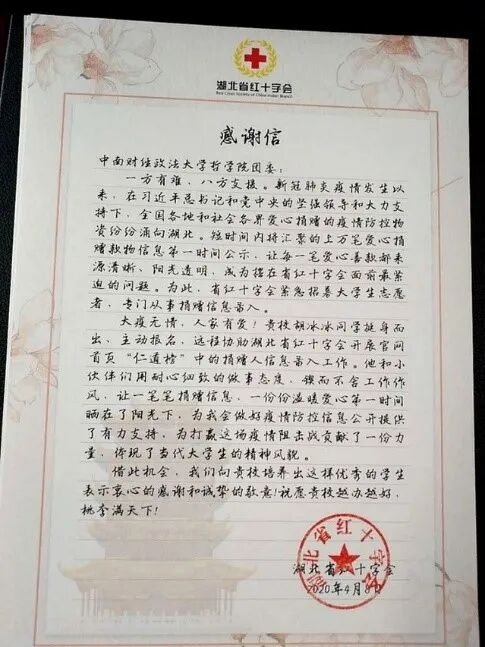 湖北省红十字会
Red Cross Society of China Hubei Branch
感谢信
中南财经政法大学哲学院团委：
一方有难，八方支援。新冠肺炎疫情发生以
来，在习近平总书记和党中央的坚强领导和大力支
持下，全国各地和社会各界爱心捐赠的疫情防控物
资纷纷涌向湖北。短时间内将汇票的上万笔爱心捐
赠款物信息第一时间公示，让每一笔爱心善款都来
源清晰、阳光透明，成为摆在省红十字会面前最紧
迫的问题。为此，省红十字会紧急招募大学生志愿
者，专门从事捐赠信息录入。
大疫无情，人家有爱！贵校胡冰冰同学挺身而
出，主动报名，远程协助湖北省红十字会开展官网
首页“仁道榜”中的捐赠人信息录入工作。他和小
伙伴们用耐心细致的做事态度，锲而不舍工作作
风，让一笔笔捐赠信息，一份份温暖爱心第一时间
晒在了阳光下，为我会做好疫情防控信息公开提供
了有力支持，为打赢这场疫情阻击战贡献了一份力
量，体现了当代大学生的精神风貌。
借此机会，我们向贵校培养出这样优秀的学生
表示衷心的感谢和诚挚的敬意！祝愿贵校越办越好，
桃李满天下！
湖北省红十字会
湖北省红十字会
2020年4月8日